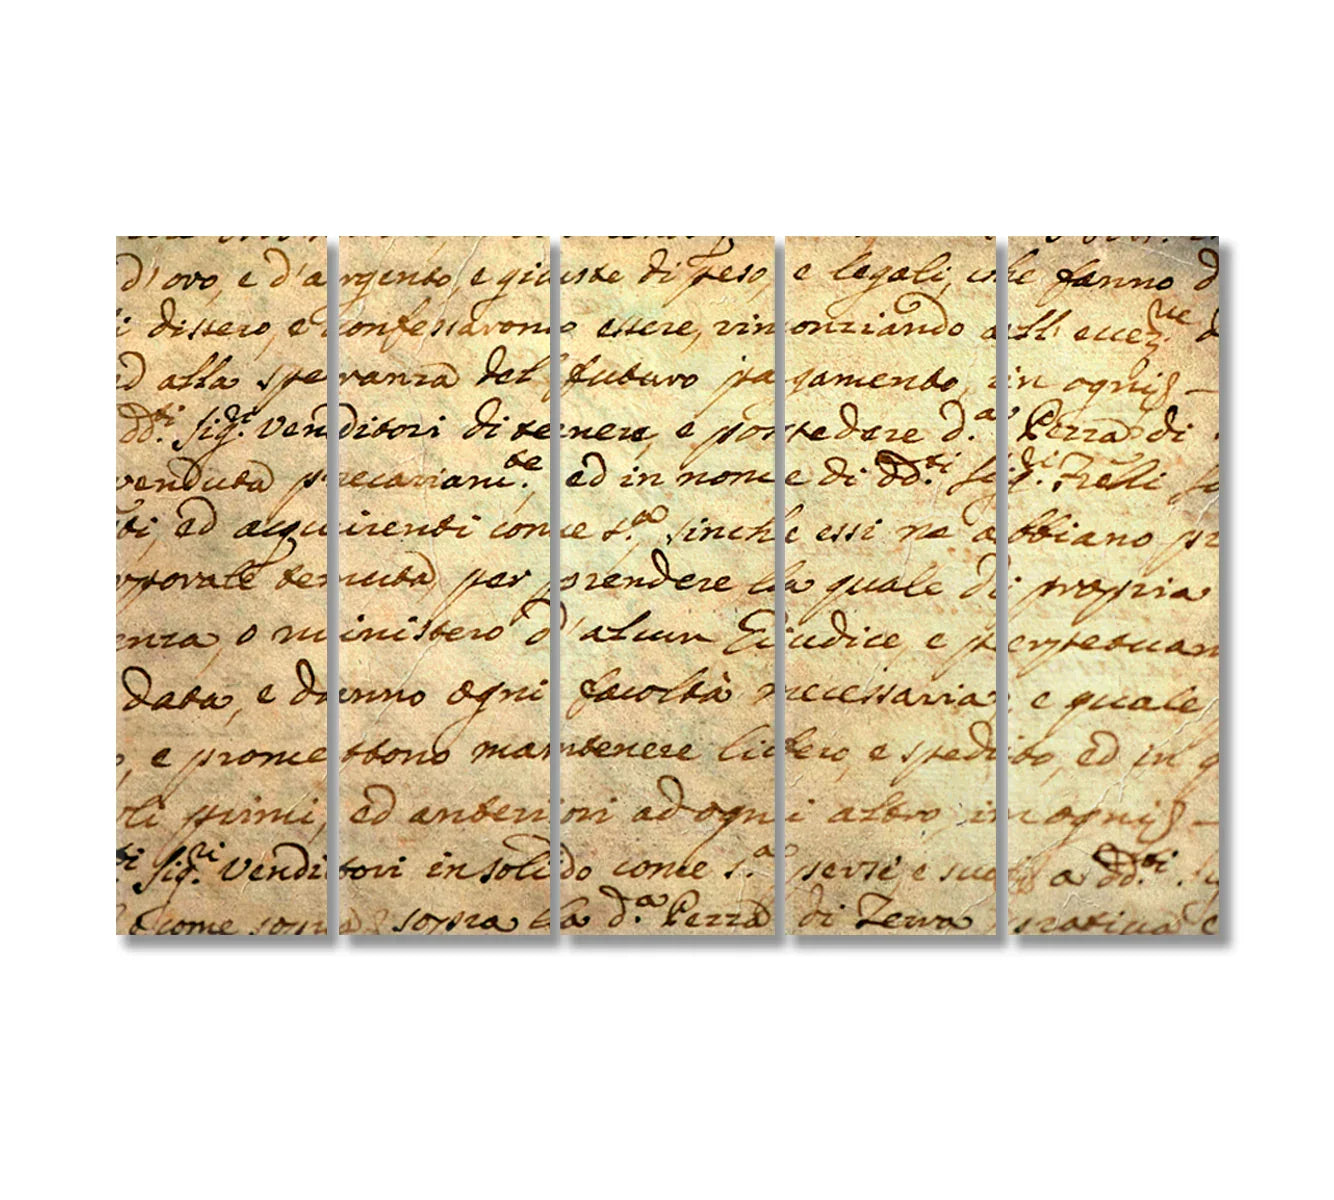 d'oro, e d'argento, e giuste di peso, e legali, che fanno d
i dissero, e confessarono essere, rinonziando all' eccez.ne d
ed alla speranza del futuro pagamento, in ogni
dd.ti Sig.ri Venditori di tenere, e possedere d.a Pezza di
venduta precariam.te ed in nome di dd.ti Sig.ri Frèli
ti, ed acquirenti come s.a sinche essi ne abbiano pr
orporale tenuta per prendere la quale di propria
enza, o ministero d'alcun Giudice, e perpetuam
data, e danno ogni facoltà necessaria, e quale
e promettono mantenere libero, e spedito, ed in q
oli primi, ed anteriori ad ogni altro, in ogni
ti Sig.ri Venditori in solido come s.a per se, e suoi a dd.ti
come sopra sopra la d.a Pezza di Terra pratiua